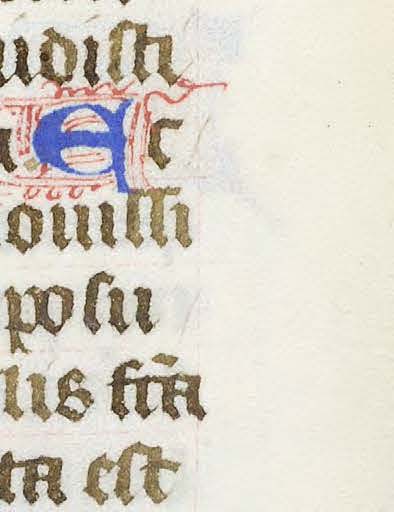 udisti
a Ec
ouisti
posu
lis fc̄a
ta est